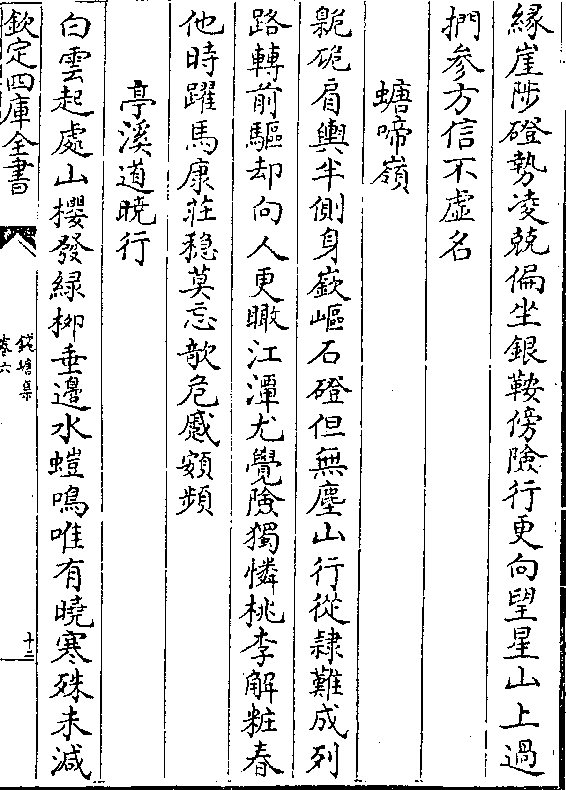 緣崖陟磴勢凌兢偏坐銀鞍傍險行更向望星山上過
捫參方信不虛名
螗啼嶺
臲硊肩輿半側身嶔嶇石磴但無塵山行從隷難成列
路轉前驅却向人更瞰江潭尤覺險獨憐桃李解粧春
他時躍馬康莊穩莫忘欹危蹙額頻
亭溪道曉行
白雲起處山櫻發緑柳垂邊水螘鳴唯有曉寒殊未減
欽定四庫全書
錢塘集
卷六
十三